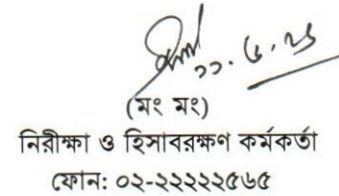 (মং মং)
নিরীক্ষা ও হিসাবরক্ষণ কর্মকর্তা
ফোন: ০২-২২২২২৫৬৫